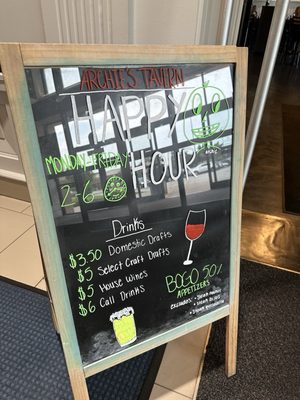 ARCHIE'S TAVERN
HAPPY
HOUR
MONDAY-FRIDAY
2-6
Drinks
$3.50 Domestic Drafts
$5 Select Craft Drafts
$5 House Wines
$6 Call Drinks
BOGO 50%
APPETIZERS
excludes: